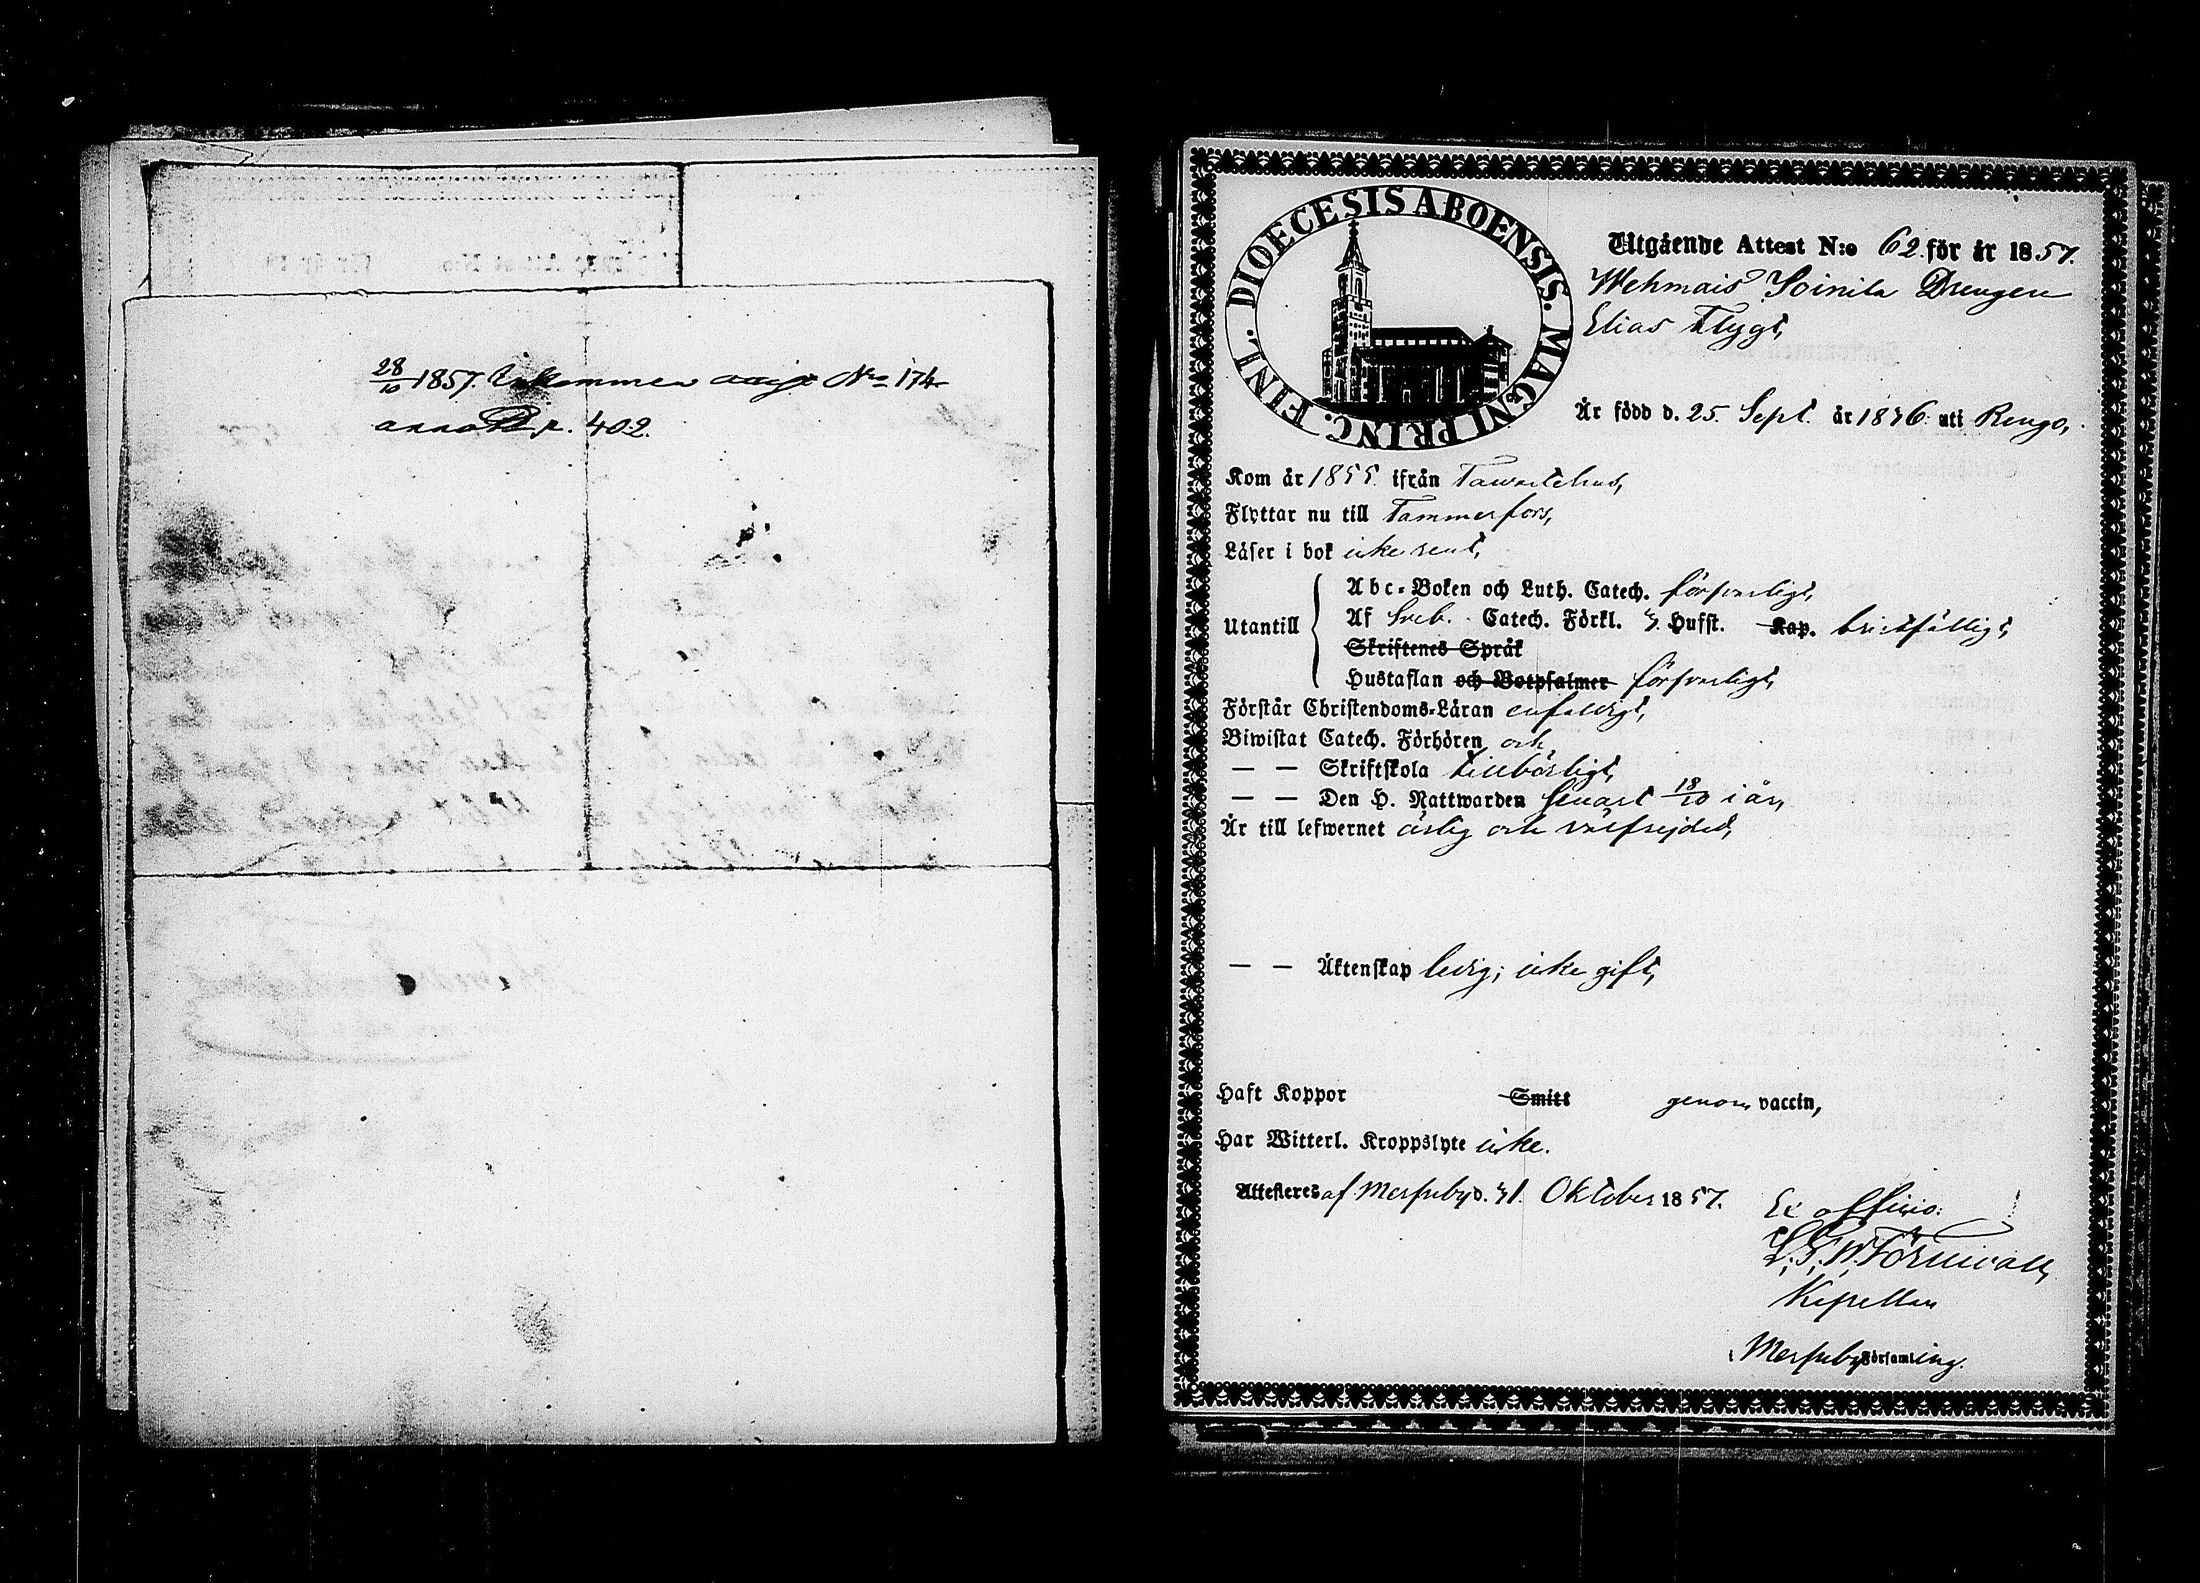 28/10 1857. Inkommen attest No 174
annot. p. 402.
DIOECESIS ABOENSIS. MAGNI PRINC. FINL.
Utgående Attest N:o 62. för år 1857.
Wehmais Soinila Drengen
Elias Flygt,
Är född d. 25. Sept. år 1836. uti Rengo,
Kom år 1855. ifrån Tawastehus,
Flyttar nu till Tammerfors,
Läser i bok icke rent,
Abc-Boken och Luth. Catech. försvarligt,
Utantill Af Sveb. Catech. Förkl. 3. Hufst. Kap. bristfälligt,
Skriftenes Språk
Hustaflan och Botpsalmer försvarligt,
Förstår Christendoms-Läran enfaldigt,
Biwistat Catech. Förhören och
— — Skriftskola tillbörligt,
— — Den H. Nattwarden senast 18/10 i år,
Är till lefwernet ärlig och välfrejdad,
— — Äktenskap ledig; icke gift,
Haft Koppor Smitt genom vaccin,
Har Witterl. Kroppslyte icke.
Attesteres af Messuby d. 21. Oktober 1857.
Ex officio:
L. G. W. Törnwall,
Kapellan
i Messuby Församling.